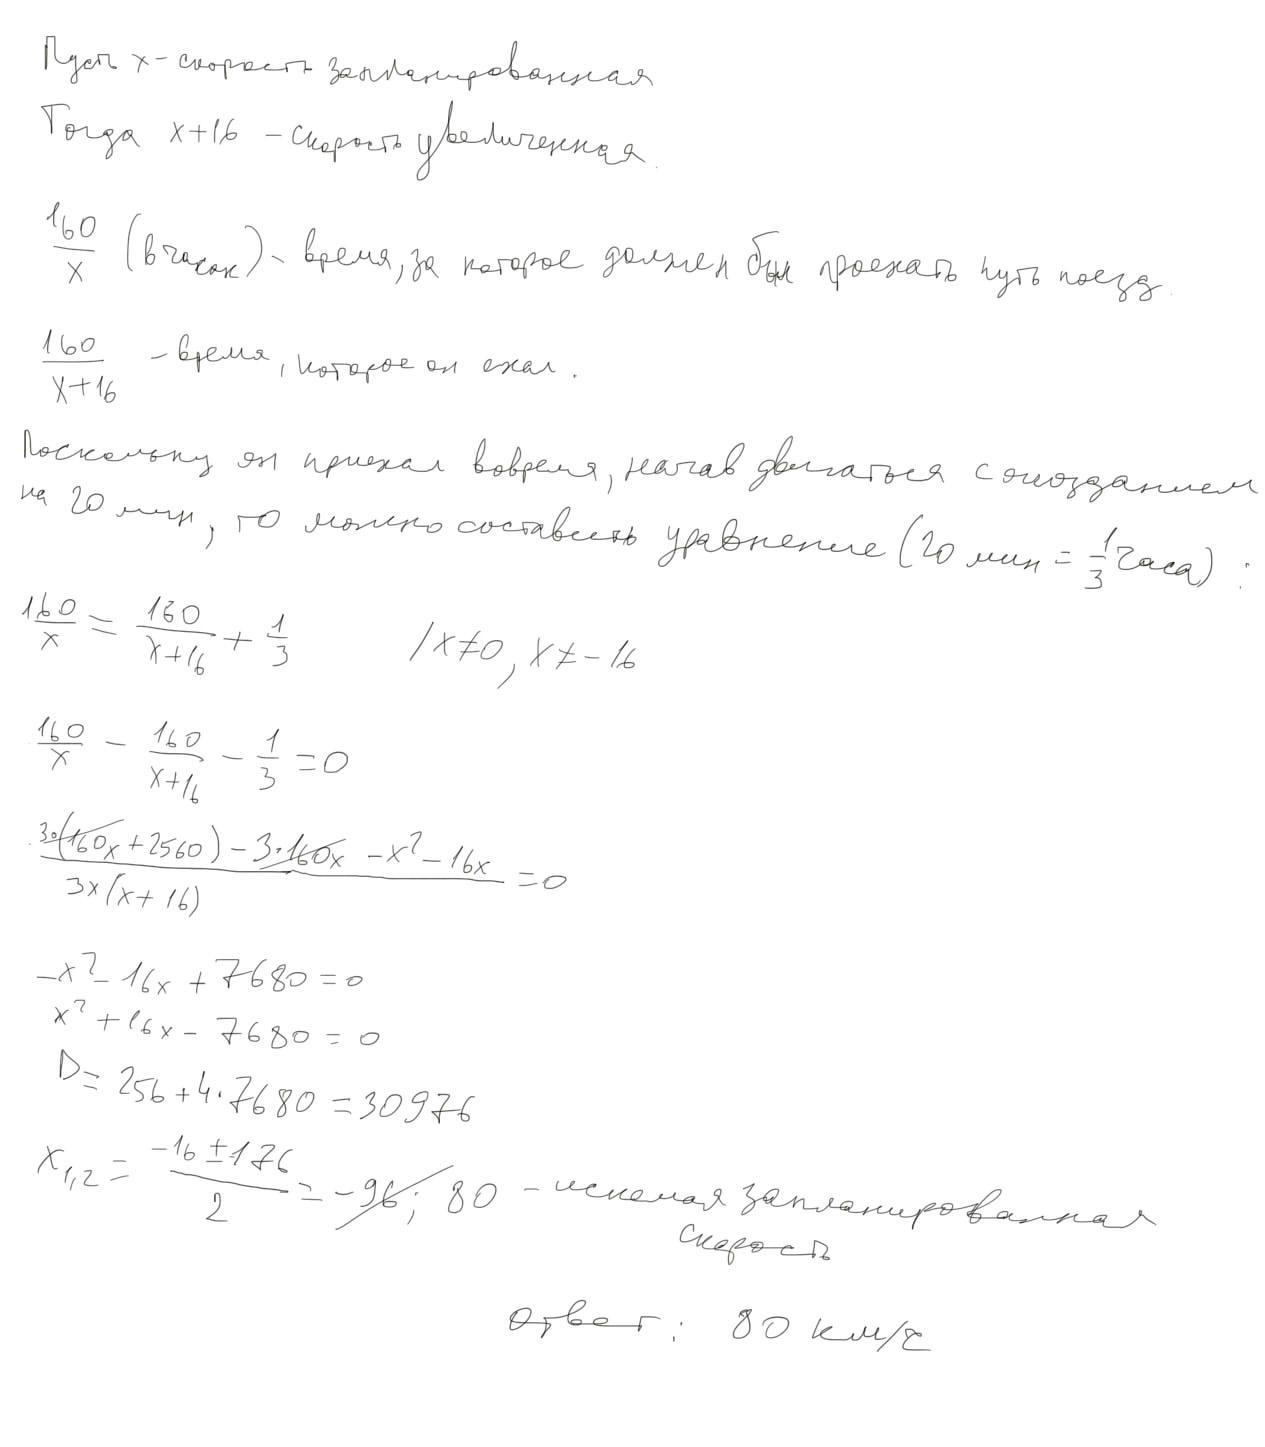 Пусть x - скорость запланированная
Тогда x+16 - скорость увеличенная.
160/x (в часах) - время, за которое должен был проехать путь поезд.
160/(x+16) - время, которое он ехал.
Поскольку он приехал вовремя, начав двигаться с опозданием
на 20 мин, то можно составить уравнение (20 мин = 1/3 часа):
160/x = 160/(x+16) + 1/3 / x≠0, x≠-16
160/x - 160/(x+16) - 1/3 = 0
(3·(160x+2560) - 3·160x - x² - 16x)/(3x(x+16)) = 0
-x² - 16x + 7680 = 0
x² + 16x - 7680 = 0
D = 256 + 4·7680 = 30976
x1,2 = (-16 ± 176)/2 = -96; 80 - искомая запланированная
скорость
Ответ: 80 км/ч